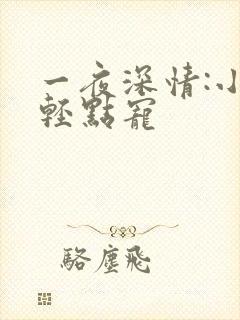 一夜深情:小
輕點寵
駱塵飛